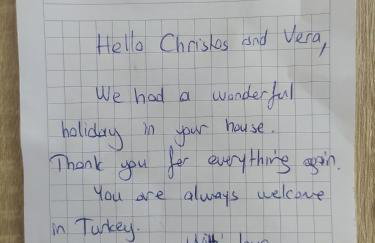 Hello Christos and Vera,
We had a wonderful
holiday in your house.
Thank you for everything again.
You are always welcome
in Turkey.
With love